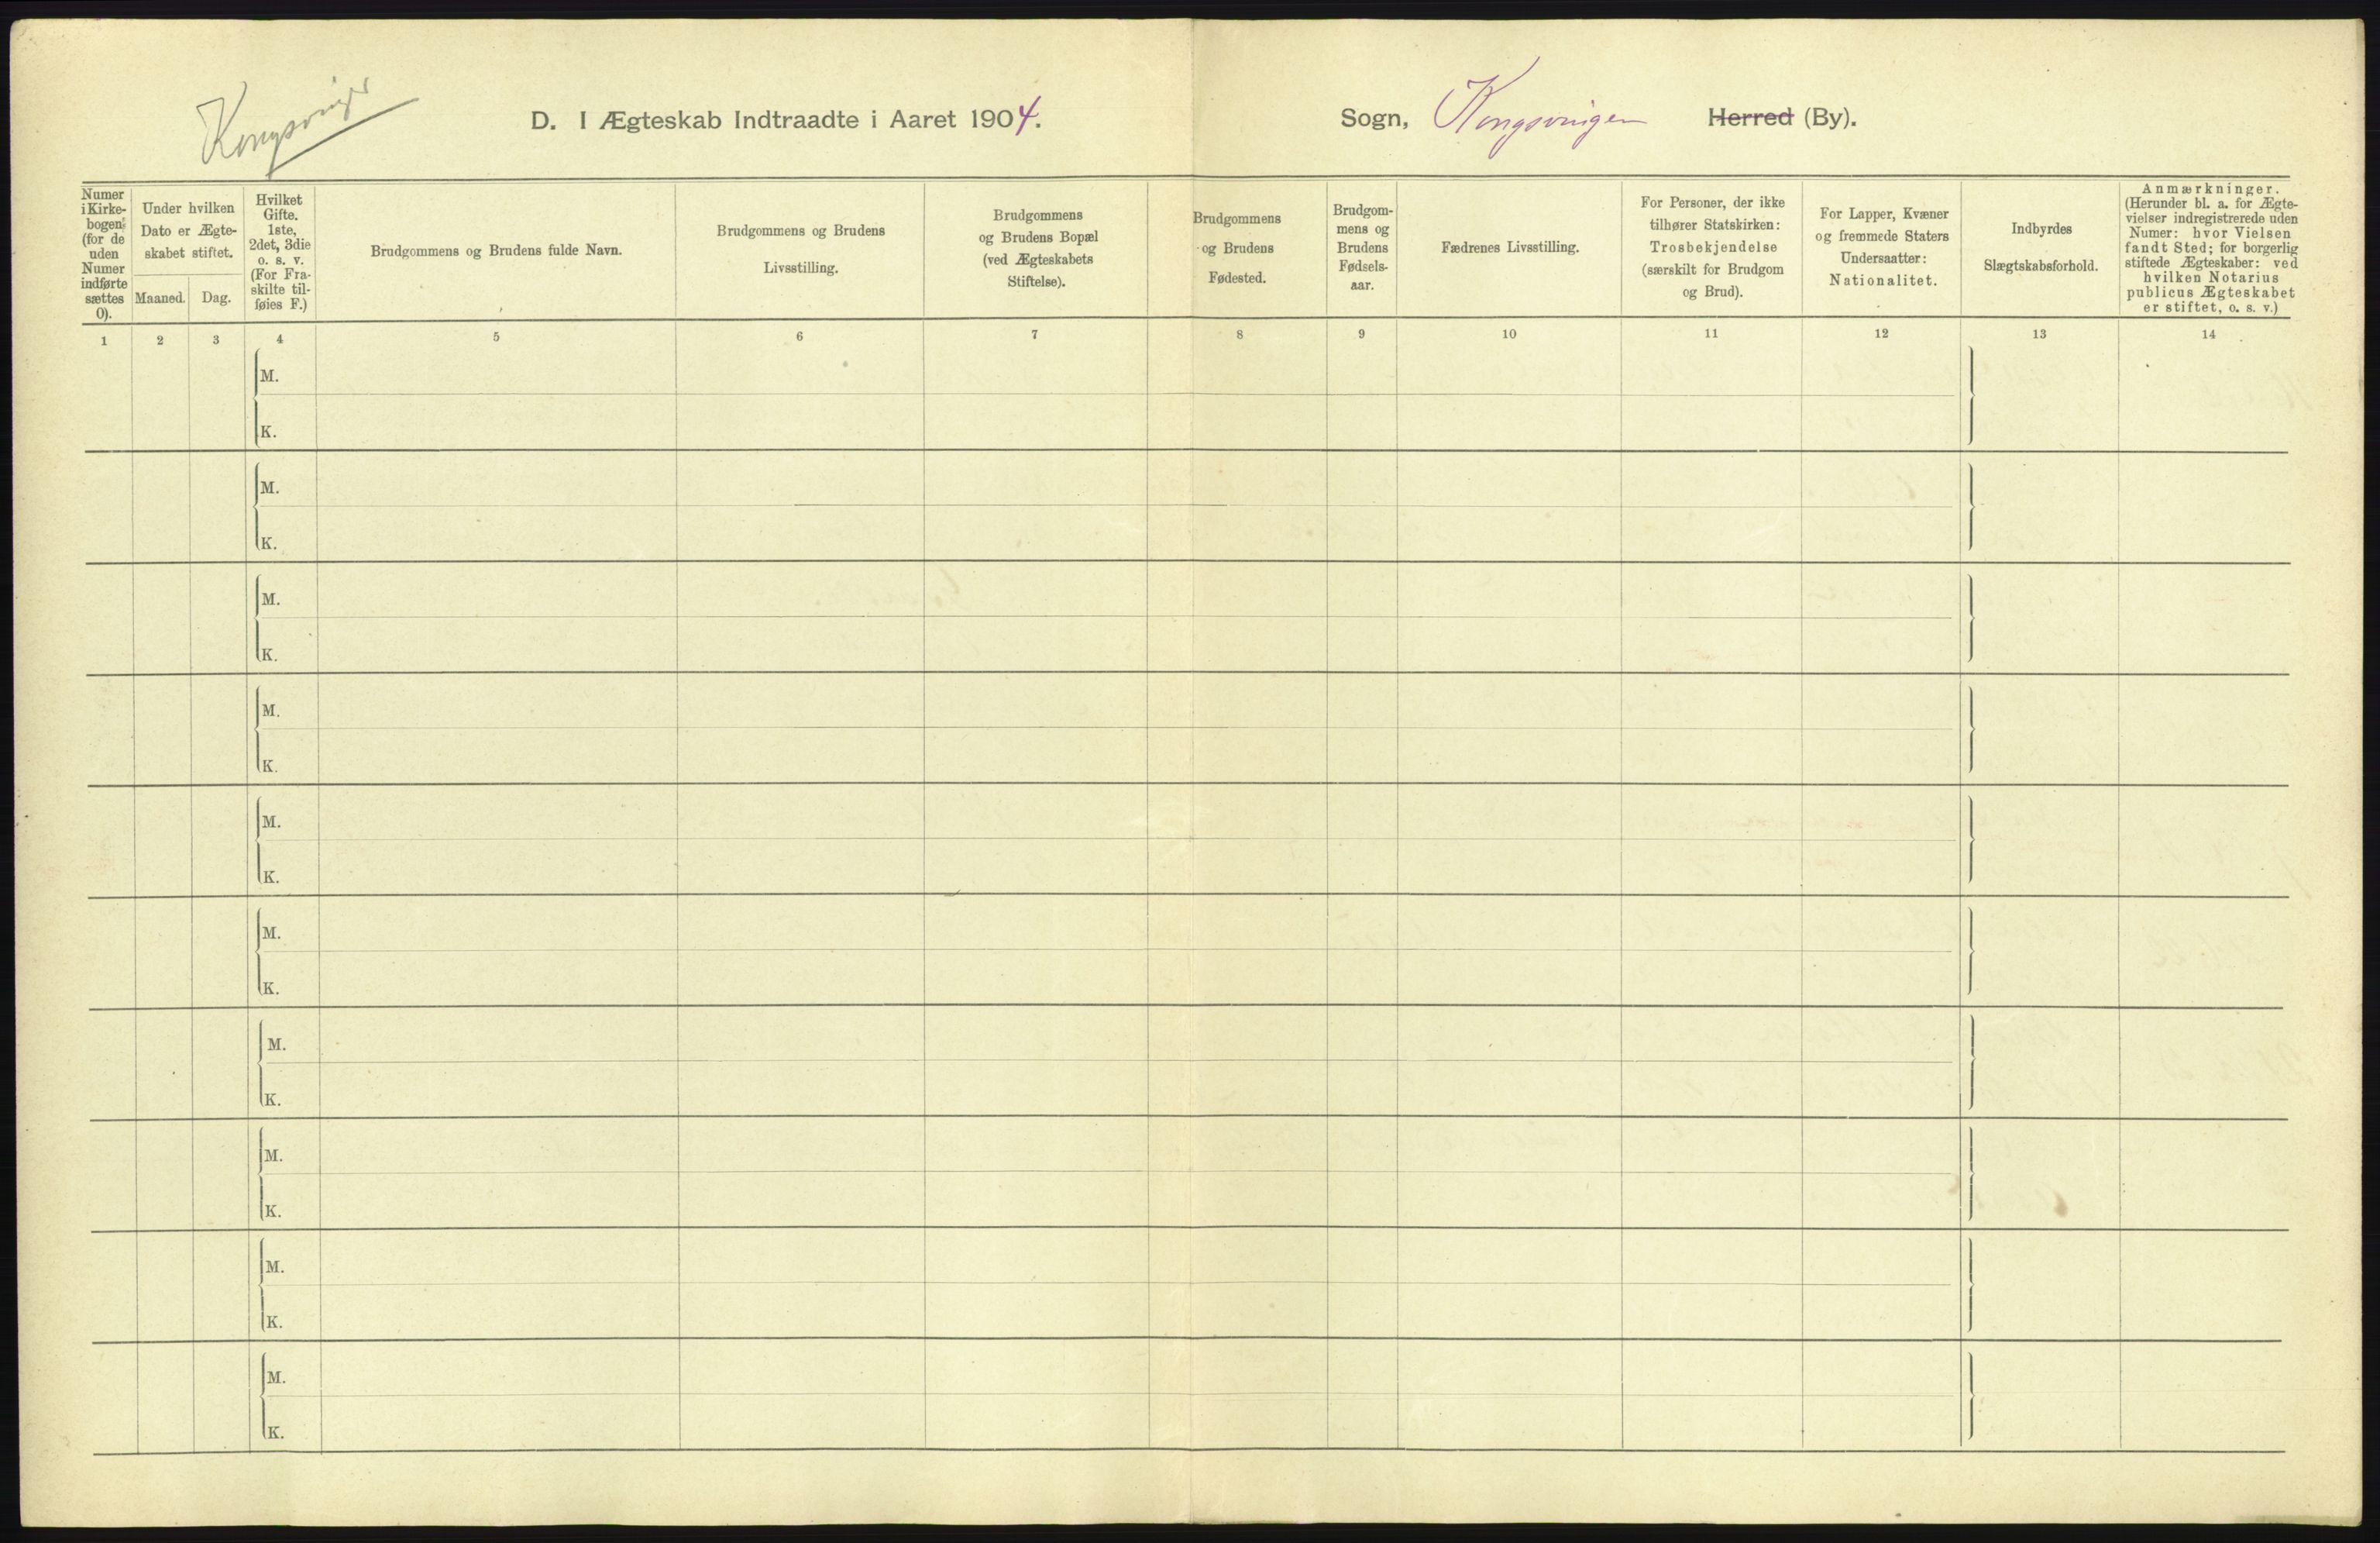 Kongsvinger
D. I Ægteskab Indtraadte i Aaret 1904.
Sogn, Kongsvinger Herred (By).
Numer
i Kirke-
bogen
(for de
uden
Numer
indførte
sættes
0).
Under hvilken
Dato er Ægte-
skabet stiftet.
Maaned.
Dag.
Hvilket
Gifte.
1ste,
2det, 3die
o. s. v.
(For Fra-
skilte til-
føies F.)
Brudgommens og Brudens fulde Navn.
Brudgommens og Brudens
Livsstilling.
Brudgommens
og Brudens Bopæl
(ved Ægteskabets
Stiftelse).
Brudgommens
og Brudens
Fødested.
Brudgom-
mens og
Brudens
Fødsels-
aar.
Fædrenes Livsstilling.
For Personer, der ikke
tilhører Statskirken:
Trosbekjendelse
(særskilt for Brudgom
og Brud).
For Lapper, Kvæner
og fremmede Staters
Undersaatter:
Nationalitet.
Indbyrdes
Slægtskabsforhold.
Anmærkninger.
(Herunder bl. a. for Ægte-
vielser indregistrerede uden
Numer: hvor Vielsen
fandt Sted; for borgerlig
stiftede Ægteskaber: ved
hvilken Notarius
publicus Ægteskabet
er stiftet, o. s. v.)
1 2 3 4 5 6 7 8 9 10 11 12 13 14
M.
K.
M.
K.
M.
K.
M.
K.
M.
K.
M.
K.
M.
K.
M.
K.
M.
K.
M.
K.